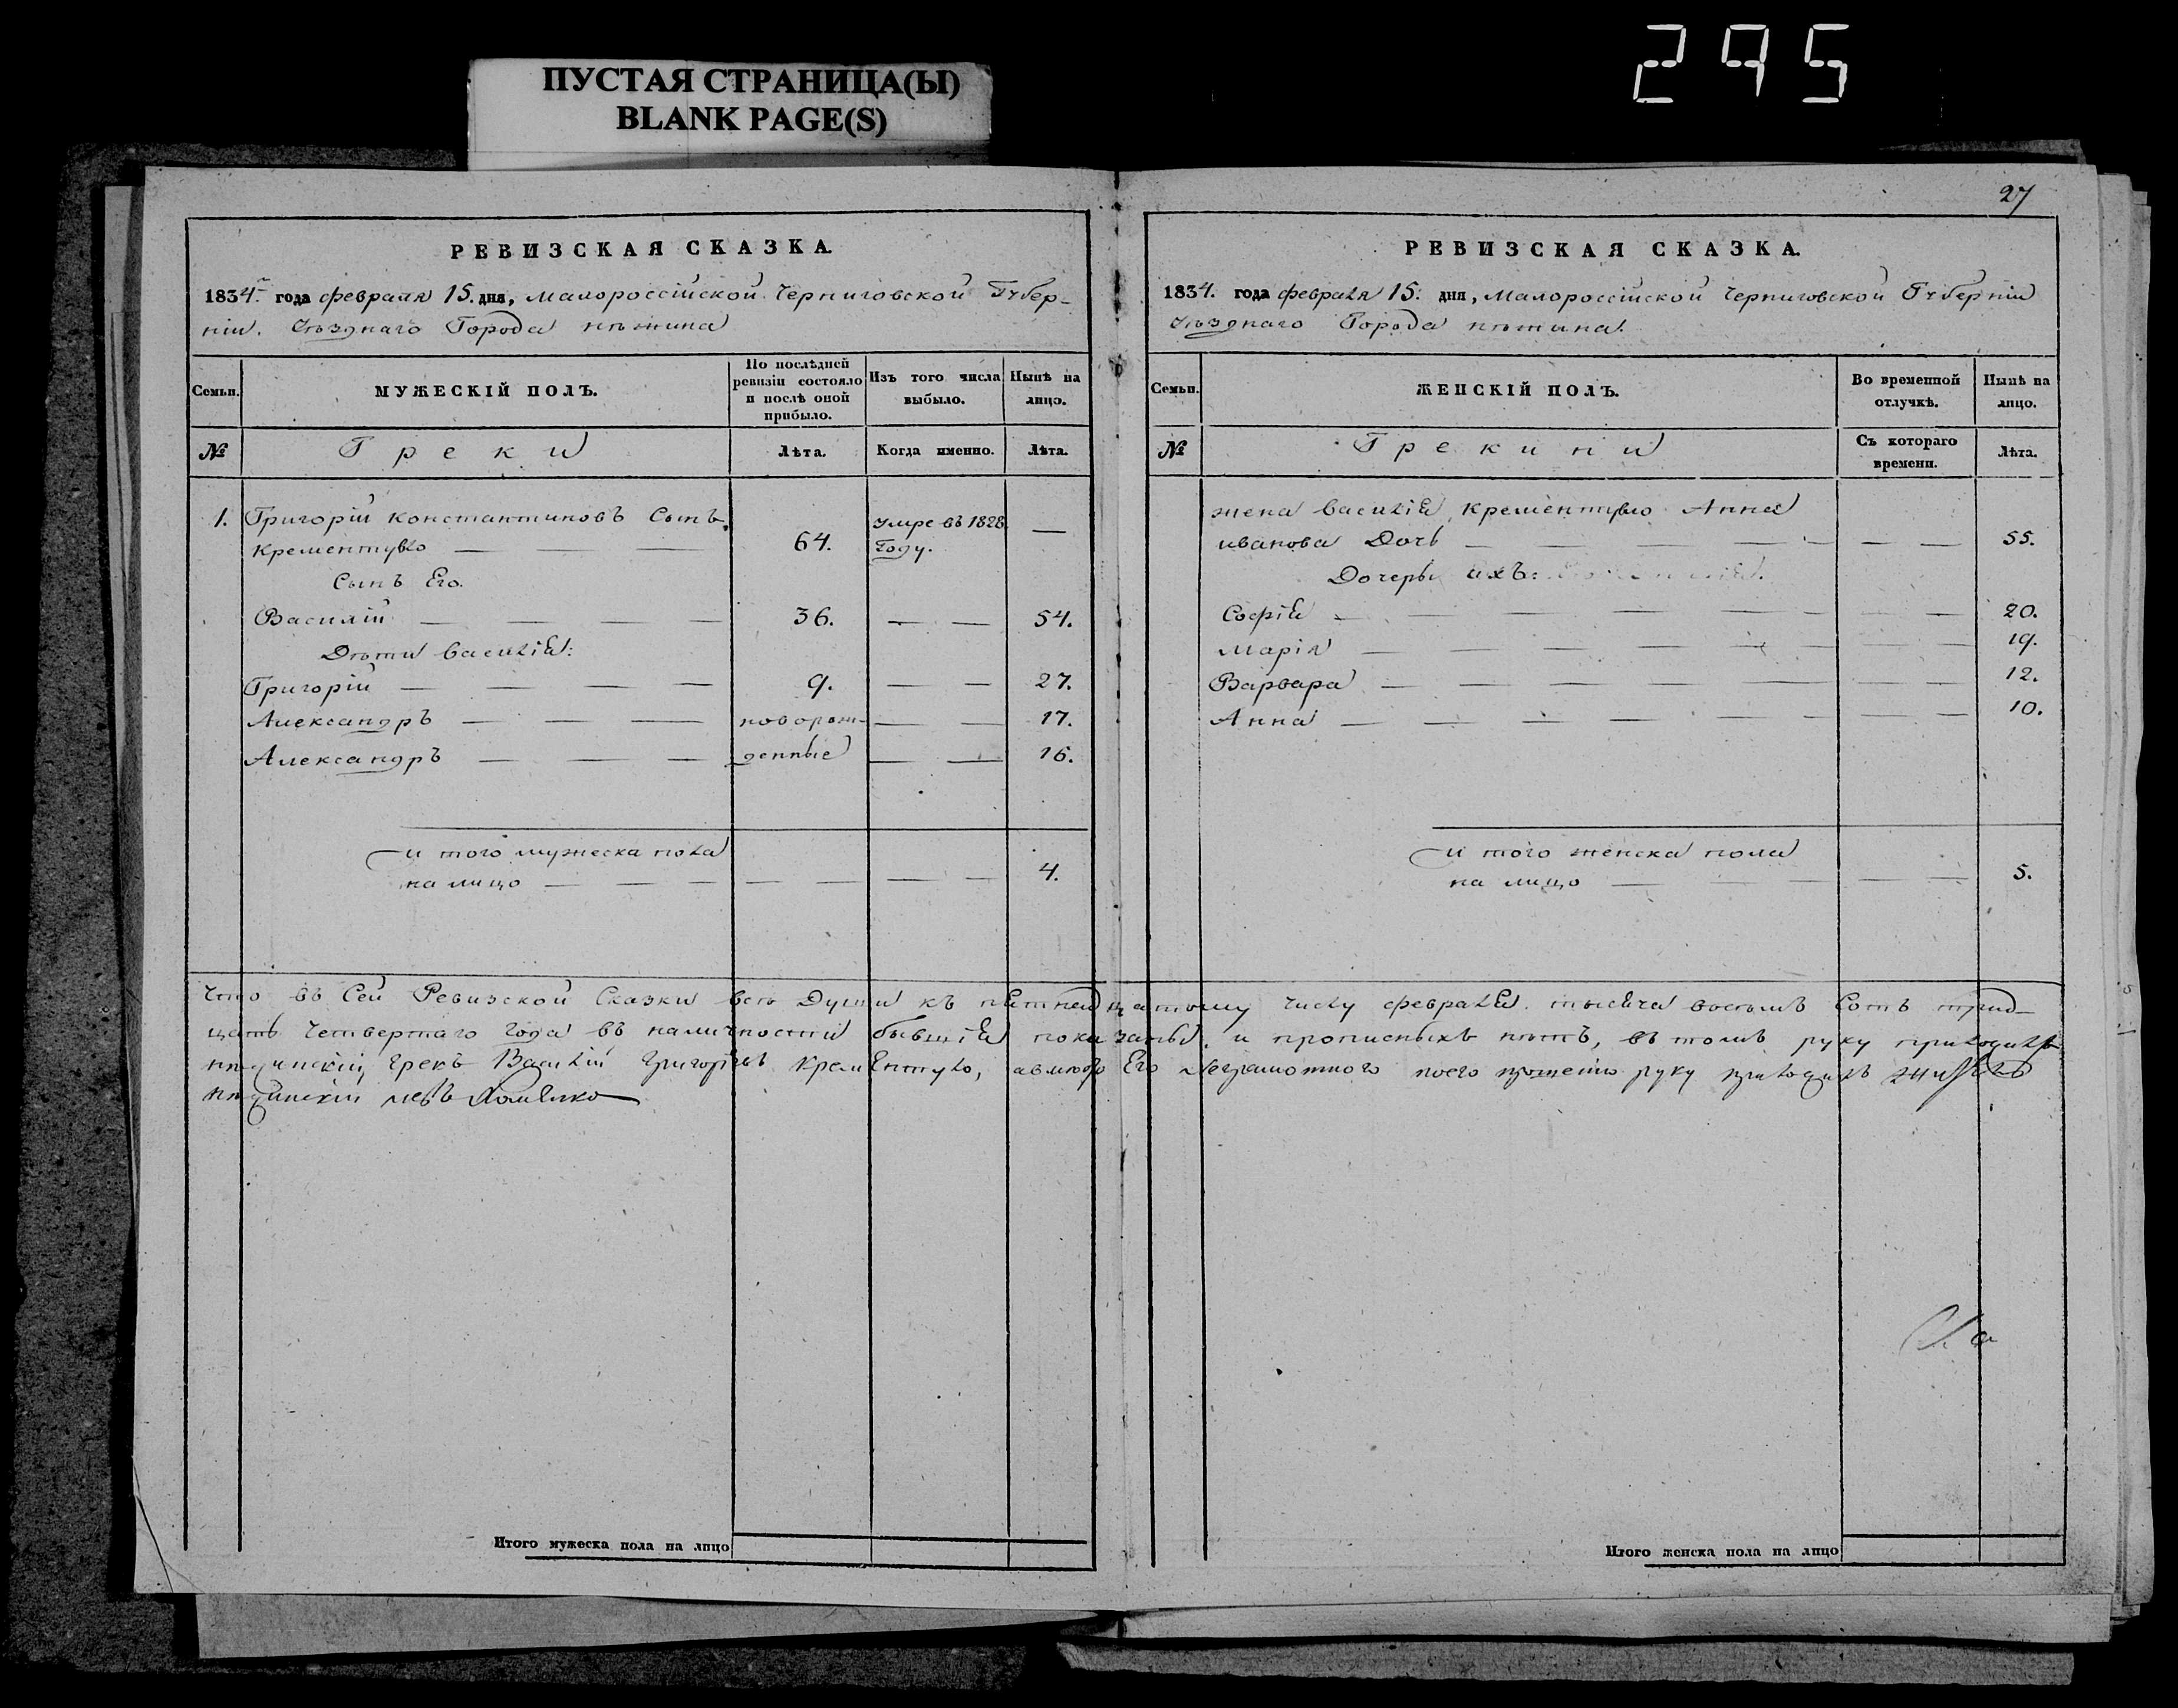 ПУСТАЯ СТРАНИЦА(Ы)
BLANK PAGE(S)
295
РЕВИЗСКАЯ СКАЗКА.
1834.го года февраля 15. дня, Малороссійской Черниговской Губер-
ніи. Уѣзднаго Города нѣжина
Семьи.
МУЖЕСКІЙ ПОЛЪ.
По послѣдней ревизіи состояло и послѣ оной прибыло.
Изъ того числа выбыло.
Нынѣ на лицо.
№
Греки
Лѣта.
Когда именно.
Лѣта.
1. Григорій Константиновъ Сынъ умре въ 1828
Крементуло — — 64. Году. —
Сынъ Его.
Василій — — — — 36. — — 54.
Дѣти Василія:
Григорій — — — — 9. — — 27.
Александръ — — — новорож- — — 17.
Александръ — — — денные — — 16.
и того мужеска пола
на лицо — — — — — — — 4.
27
РЕВИЗСКАЯ СКАЗКА.
1834. года февраля 15. дня, Малороссійской Черниговской Губерніи
Уѣзднаго Города нѣжина.
Семьи.
ЖЕНСКІЙ ПОЛЪ.
Во временной отлучкѣ.
Нынѣ на лицо.
№
Грекини
Съ котораго времени.
Лѣта.
жена Василія Крементуло Анна
иванова Дочь — — — — — — 55.
Дочеры ихъ:
Софія — — — — — — — 20.
Марія — — — — — — — 19.
Варвара — — — — — — — 12.
Анна — — — — — — — 10.
и того женска пола
на лицо — — — — — 5.
Что въ Сей Ревизской Сказки всѣ Души къ пятнадцатому числу февраля тысяча восемъ Сотъ трид-
цать Четвертаго года въ наличности бывшія показаны, и прописныхъ нѣтъ, въ томъ руку приложилъ
нѣжинскій Грекъ Василій Григорьевъ Крементуло, а вмѣсто Его неграмотнаго по его прошенію руку приложилъ
нѣжинскій
Итого мужеска пола на лицо
Итого женска пола на лицо